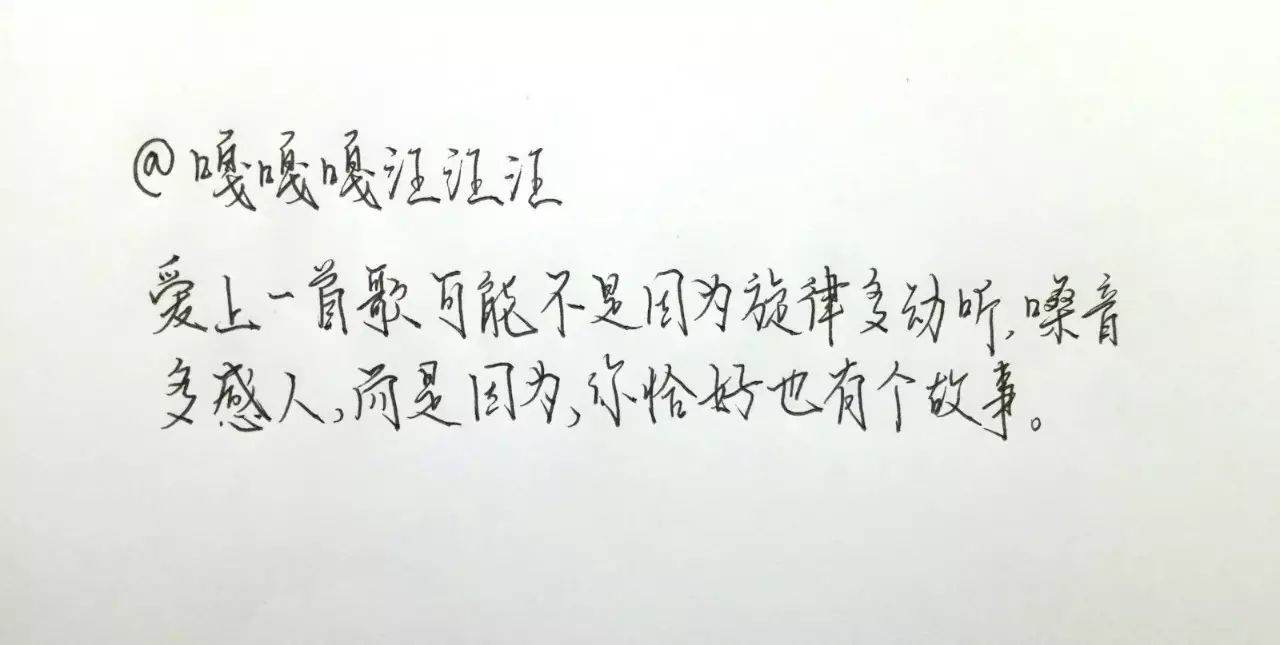 @嘎嘎嘎汪汪汪
爱上一首歌可能不是因为旋律多动听,嗓音
多感人,而是因为,你恰好也有个故事。